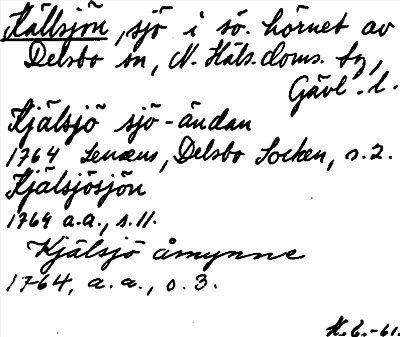 Källsjön, sjö i sö. hörnet av
Delsbo sn, N. Häls. doms. fg,
Gävl. l.
Kjälsjö sjö-ändan
1764 Lenæus, Delsbo Socken, s. 2.
Kjälsjösjön
1764 a.a., s. 11.
Kjälsjö åmynne
1764, a.a., s. 3.
H. E. -61.